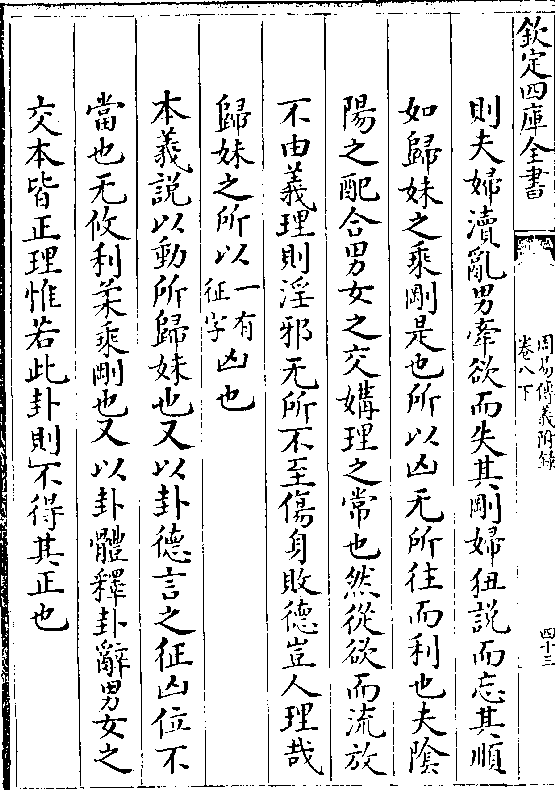 欽定四庫全書
周易傳義附錄
卷八下
四十三
則夫婦瀆亂男牽欲而失其剛婦狃説而忘其順
如歸妹之乘剛是也所以凶无所往而利也夫隂
陽之配合男女之交媾理之常也然從欲而流放
不由義理則淫邪无所不至傷身敗德豈人理哉
歸妹之所以一有征字凶也
本義説以動所歸妹也又以卦德言之征凶位不
當也无攸利柔乘剛也又以卦體釋卦辭男女之
交本皆正理惟若此卦則不得其正也